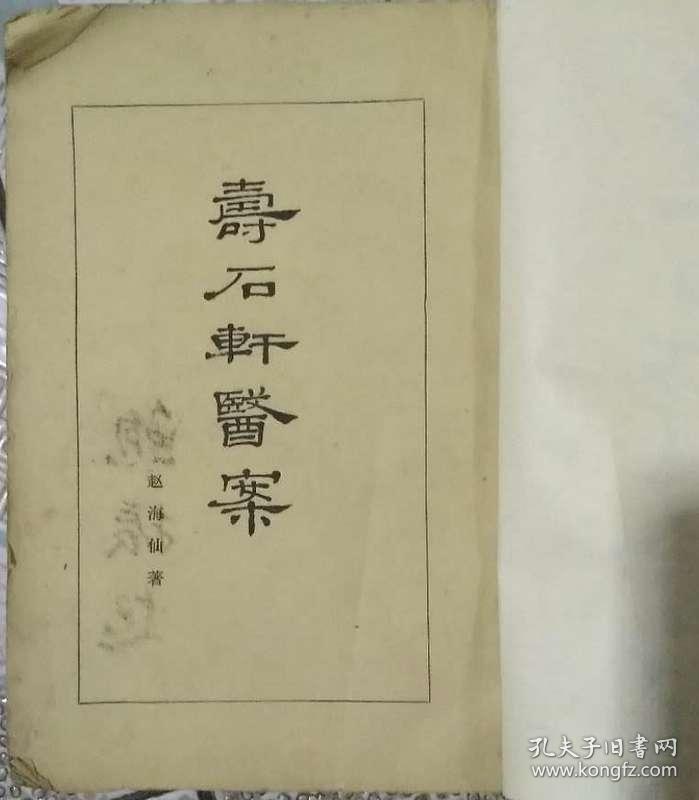 壽石軒醫案
赵海仙著
孔夫子旧书网
www.kongfz.com